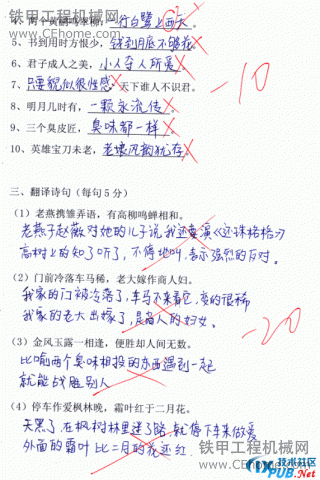 铁甲工程机械网
www.CEhome.com
4、两个黄鹂鸣翠柳,一行白鹭上西天
5、书到用时方恨少,钱到月底不够花
6、君子成人之美,小人夺人所爱
7、只要貌似很性感,天下谁人不识君。
8、明月几时有,一颗永流传。
9、三个臭皮匠,臭味都一样。
10、英雄宝刀未老,老娘风韵犹存。
-10
三、翻译诗句(每句5分)
(1)老燕携雏弄语,有高柳鸣蝉相和。
老燕子赵薇对她的儿子说我还要演《还珠格格》
高树上的知了听了,不停地叫,表示强烈的反对。
(2)门前冷落车马稀,老大嫁作商人妇。
我家的门被冷落了,车马不来看它,凄的很稀
我家的老大出嫁了,是商人的妇女。
-20
(3)金风玉露一相逢,便胜却人间无数。
比喻两个臭味相投的东西遇到一起
就能战胜别人
(4)停车作爱枫林晚,霜叶红于二月花。
天黑了,在枫树林里迷了路,就停下车来做爱
外面的霜叶比二月的花还红.
铁甲工程机械网
www.CEhome.com
技术社区
PUB.Net